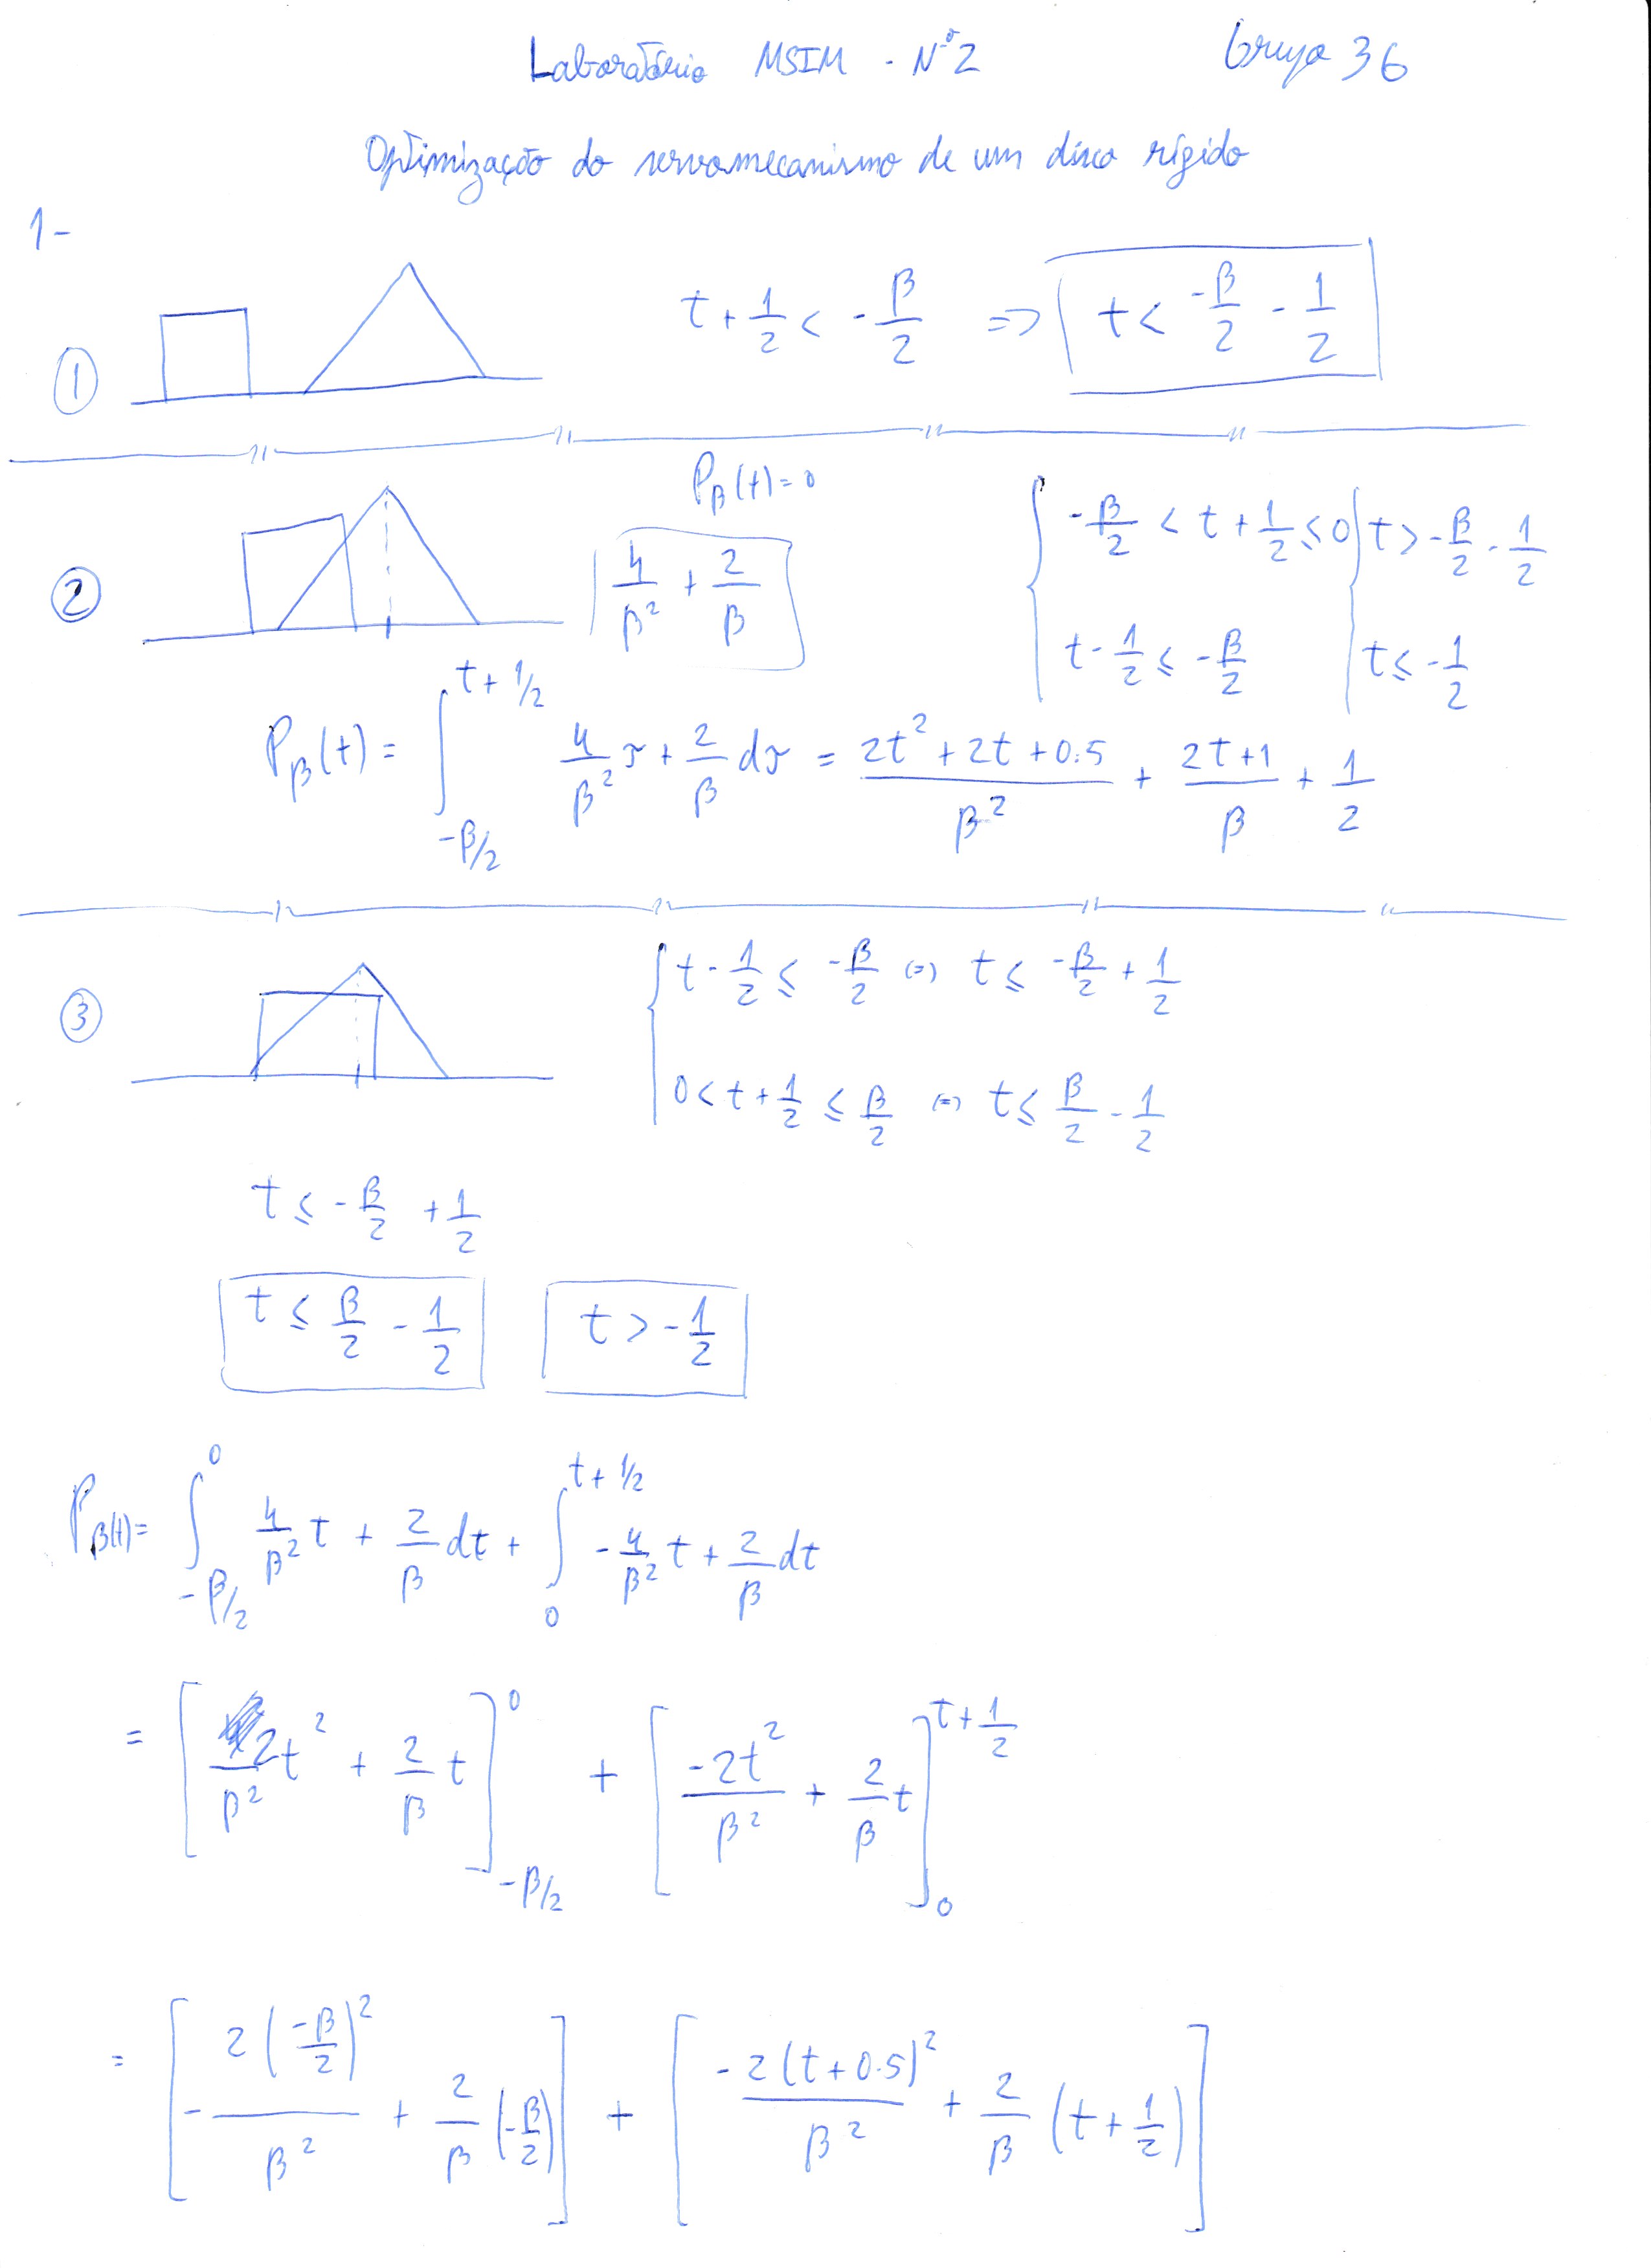 Laboratório MSIM - Nº2 Grupo 36
Optimização do servomecanismo de um disco rígido
1-
① t + 1/2 < - β/2 => t < -β/2 - 1/2
Pβ(t) = 0
② 4/β² + 2/β { -β/2 < t + 1/2 ≤ 0 { t > -β/2 - 1/2
t - 1/2 ≤ -β/2 t ≤ -1/2
Pβ(t) = ∫_{-β/2}^{t + 1/2} 4/β² τ + 2/β dτ = (2t² + 2t + 0.5)/β² + (2t+1)/β + 1/2
③ { t - 1/2 ≤ -β/2 (=) t ≤ -β/2 + 1/2
0 < t + 1/2 ≤ β/2 (=) t ≤ β/2 - 1/2
t ≤ -β/2 + 1/2
t ≤ β/2 - 1/2 t > -1/2
Pβ(t) = ∫_{-β/2}^{0} 4/β² t + 2/β dt + ∫_{0}^{t + 1/2} -4/β² t + 2/β dt
= [2/β² t² + 2/β t]_{-β/2}^{0} + [-2t²/β² + 2/β t]_{0}^{t + 1/2}
= [- 2(-β/2)²/β² + 2/β (-β/2)] + [-2(t+0.5)²/β² + 2/β (t + 1/2)]